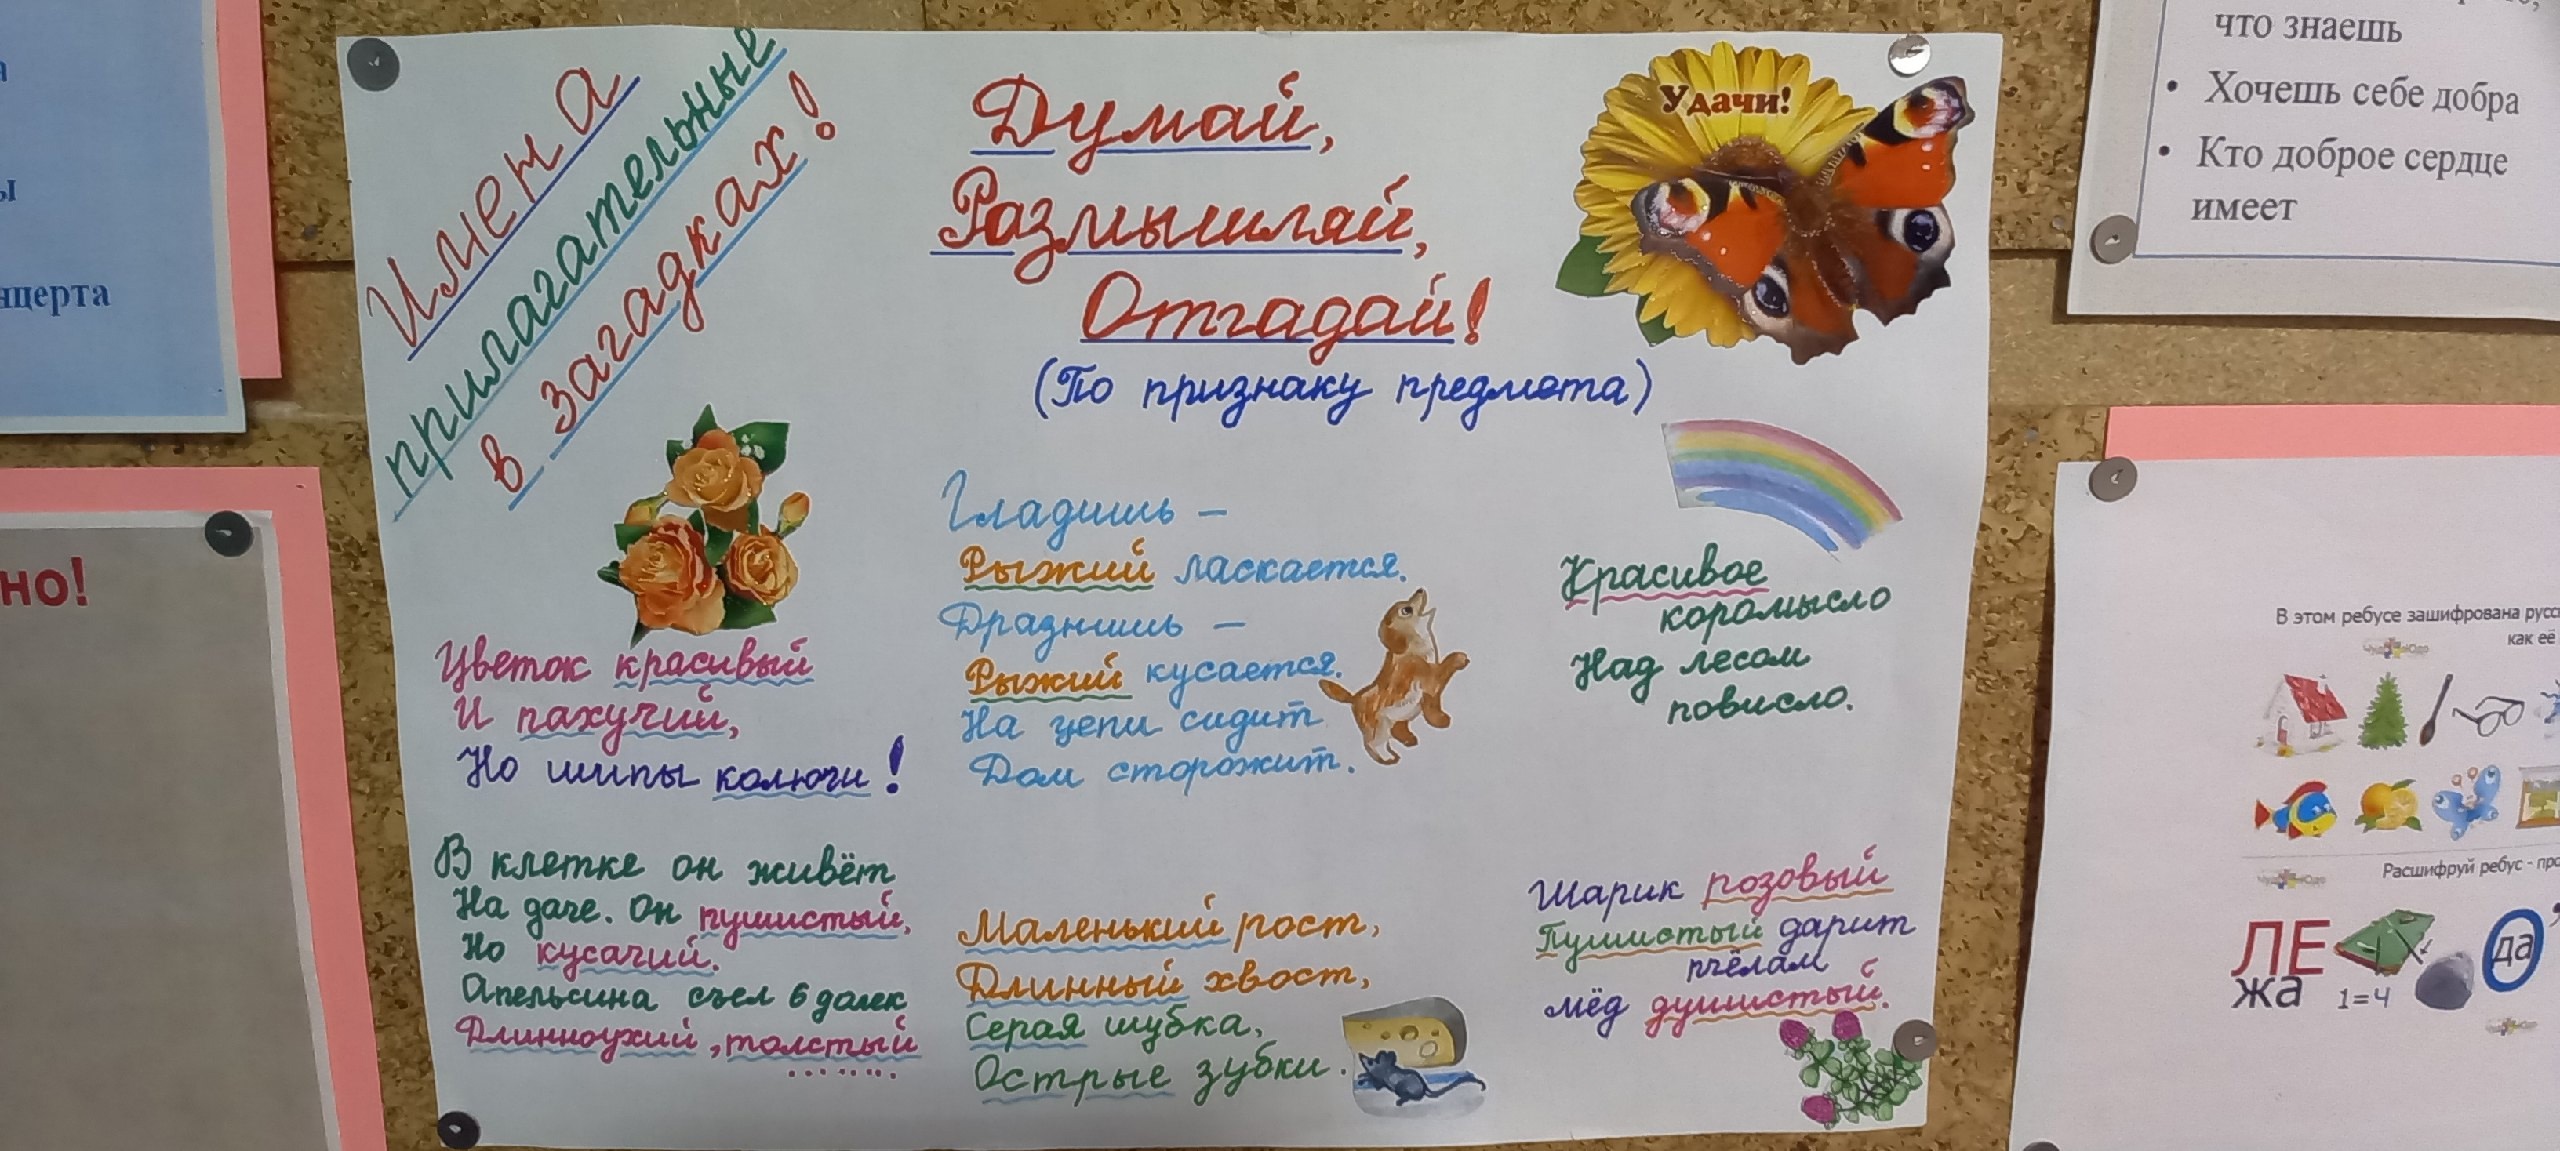 нцерта
но!
Имена
прилагательные
в загадках!
Думай,
Размышляй,
Отгадай!
(По признаку предмета)
Удачи!
Цветок красивый
И пахучий,
Но шипы колючи!
В клетке он живёт
На даче. Он пушистый,
Но кусачий.
Апельсина съел 6 долек
Длинноухий, толстый
........
Гладишь –
Рыжий ласкается.
Дразнишь –
Рыжий кусается.
На цепи сидит
Дом сторожит.
Маленький рост,
Длинный хвост,
Серая шубка,
Острые зубки.
Красивое
коромысло
Над лесом
повисло.
Шарик розовый
Пушистый дарит
пчёлам
мёд душистый.
что знаешь
• Хочешь себе добра
• Кто доброе сердце
имеет
В этом ребусе зашифрована русс
как её
Расшифруй ребус - про
ЛЕ
жа
1=Ч
да